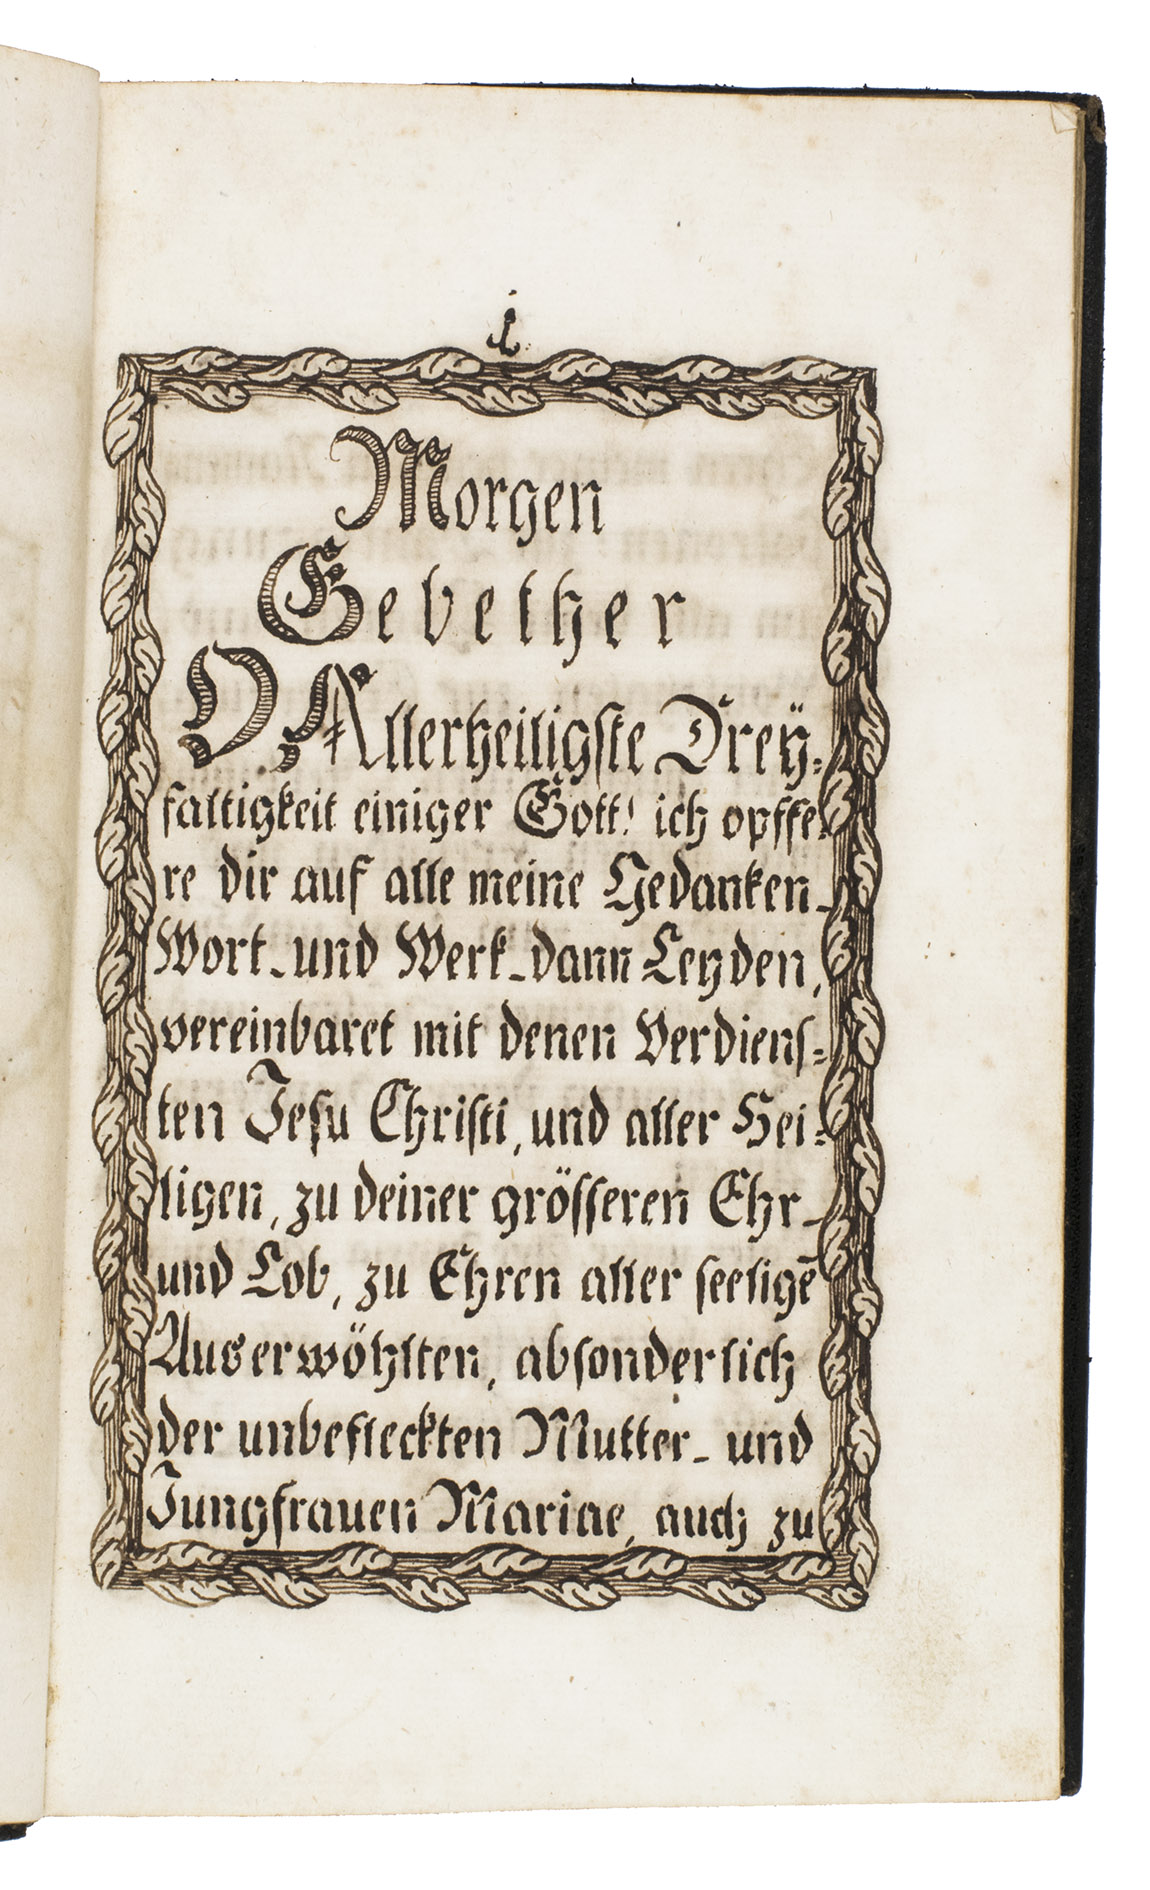 1
Morgen
Gebether
O Allerheiligste Dreÿ=
faltigkeit einiger Gott! ich opffe=
re dir auf alle meine Gedanken_
Wort_ und Werk_ dann Leyden,
vereinbaret mit denen Verdiens=
ten Jesu Christi, und aller Hei=
ligen, zu deiner grösseren Ehr_
und Lob, zu Ehren aller seelige̅
Auserwöhlten, absonderlich
der unbefleckten Mutter_ und
Jungfrauen Mariae, auch zu